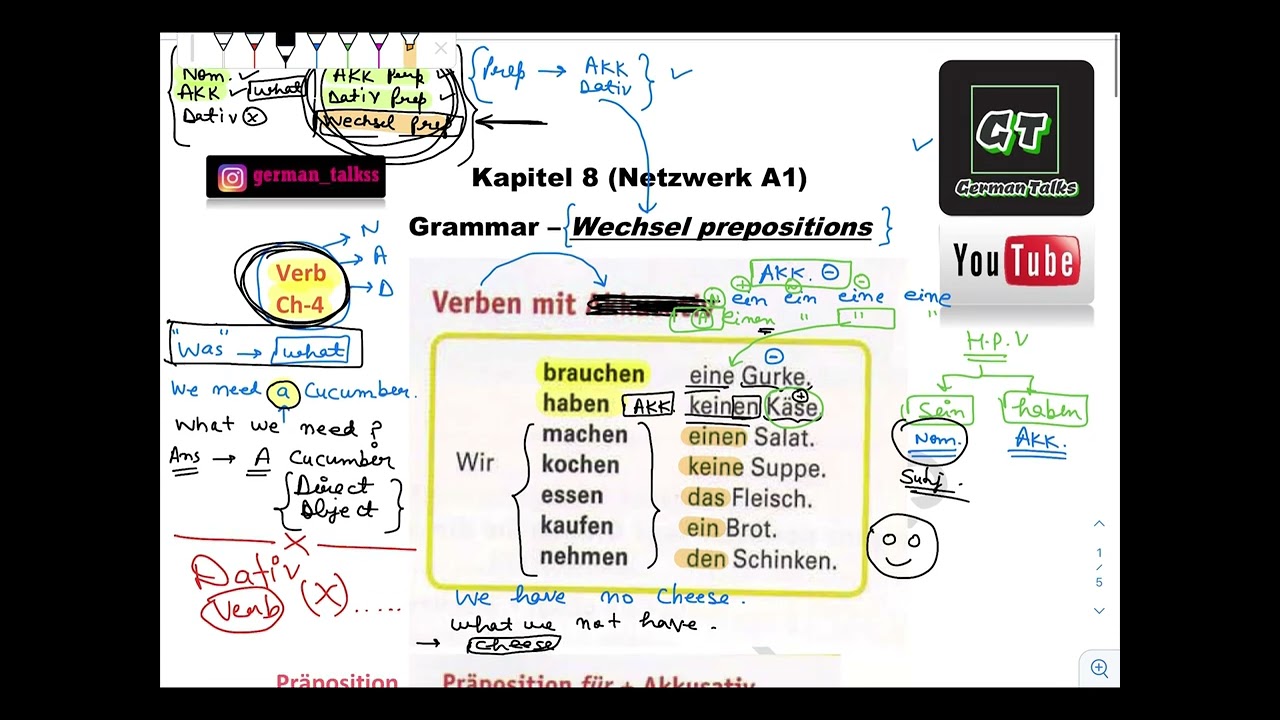 Nom. ✓
AKK ✓ what
Dativ x
AKK Perp ✓
Dativ Prep ✓
Wechsel Prep
Prep → AKK
Dativ
german_talkss
GT
German Talks
You Tube
Kapitel 8 (Netzwerk A1)
Grammar – Wechsel prepositions
Verb
Ch-4
N
A
D
"Was" → what
We need a Cucumber.
What we need?
Ans → A Cucumber
Direct
Object
x
Dativ
Verb (x).....
Verben mit
AKK. –
ein ein eine eine
A einen " " "
Wir
brauchen eine Gurke.
haben AKK keinen Käse.
machen einen Salat.
kochen keine Suppe.
essen das Fleisch.
kaufen ein Brot.
nehmen den Schinken.
H.P.V
sein haben
Nom. AKK.
Subj.
We have no Cheese.
What we not have.
→ Cheese
1
/
5
Präposition
Präposition für + Akkusativ